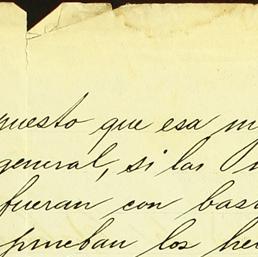 puesto que esa m
general, si las P
fueran con bas
prueban los he